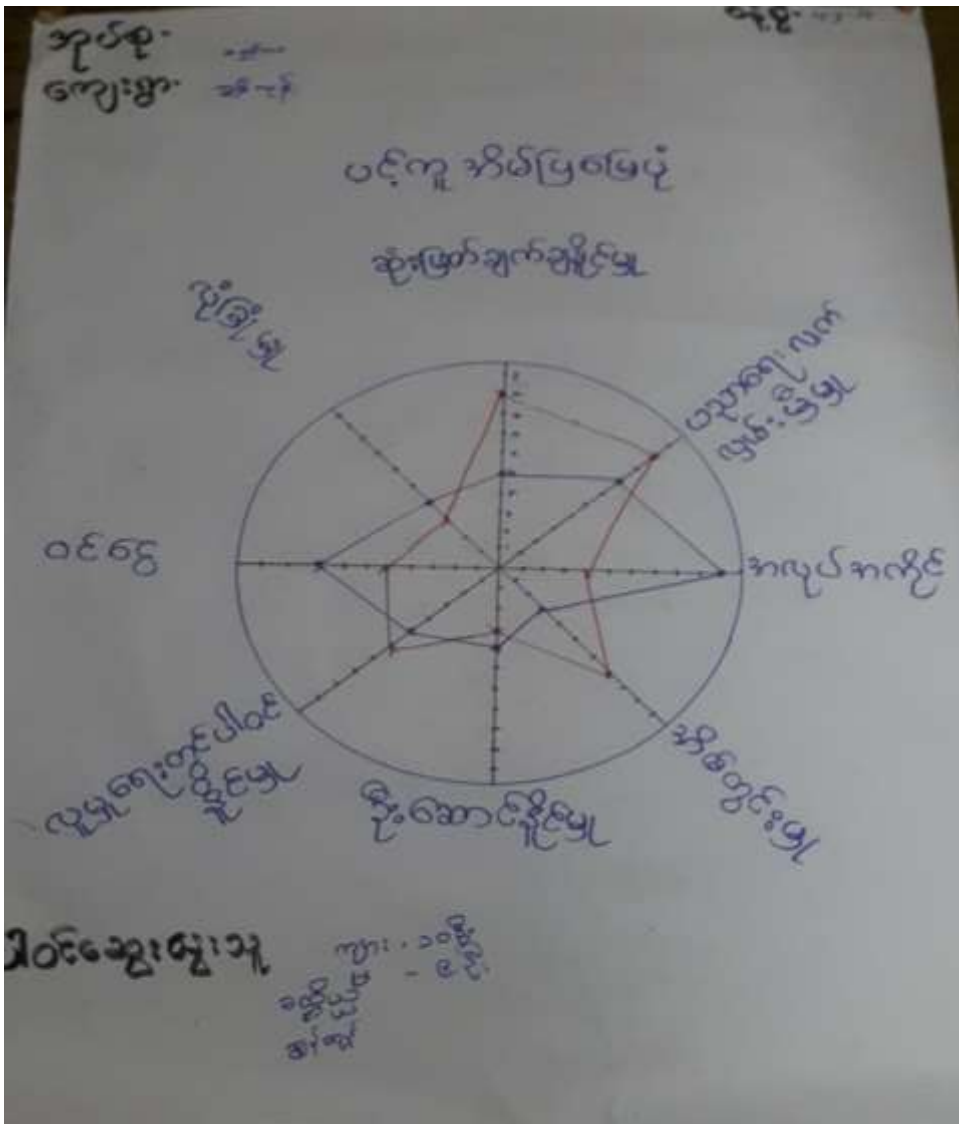 အုပ်စု -
ကျေးရွာ -
ပင့်ကူ အိမ်ပြမြေပုံ
ဆုံးဖြတ်ချက်ချနိုင်မှု
ပုံ့ဖြိုးမှု
ပညာရေး လက်
လှမ်းမှီမှု
ဝင်ငွေ
အလုပ်အကိုင်
လူမှုရေးတွင်ပါဝင်
နိူင်မှု
ဦးဆောင်နိူင်မှု
အိမ်တွင်းမှု
ပါဝင်ဆွေးနွေးသူ
ကျား - ၁၀ ဦး
မ - ၉ ဦး